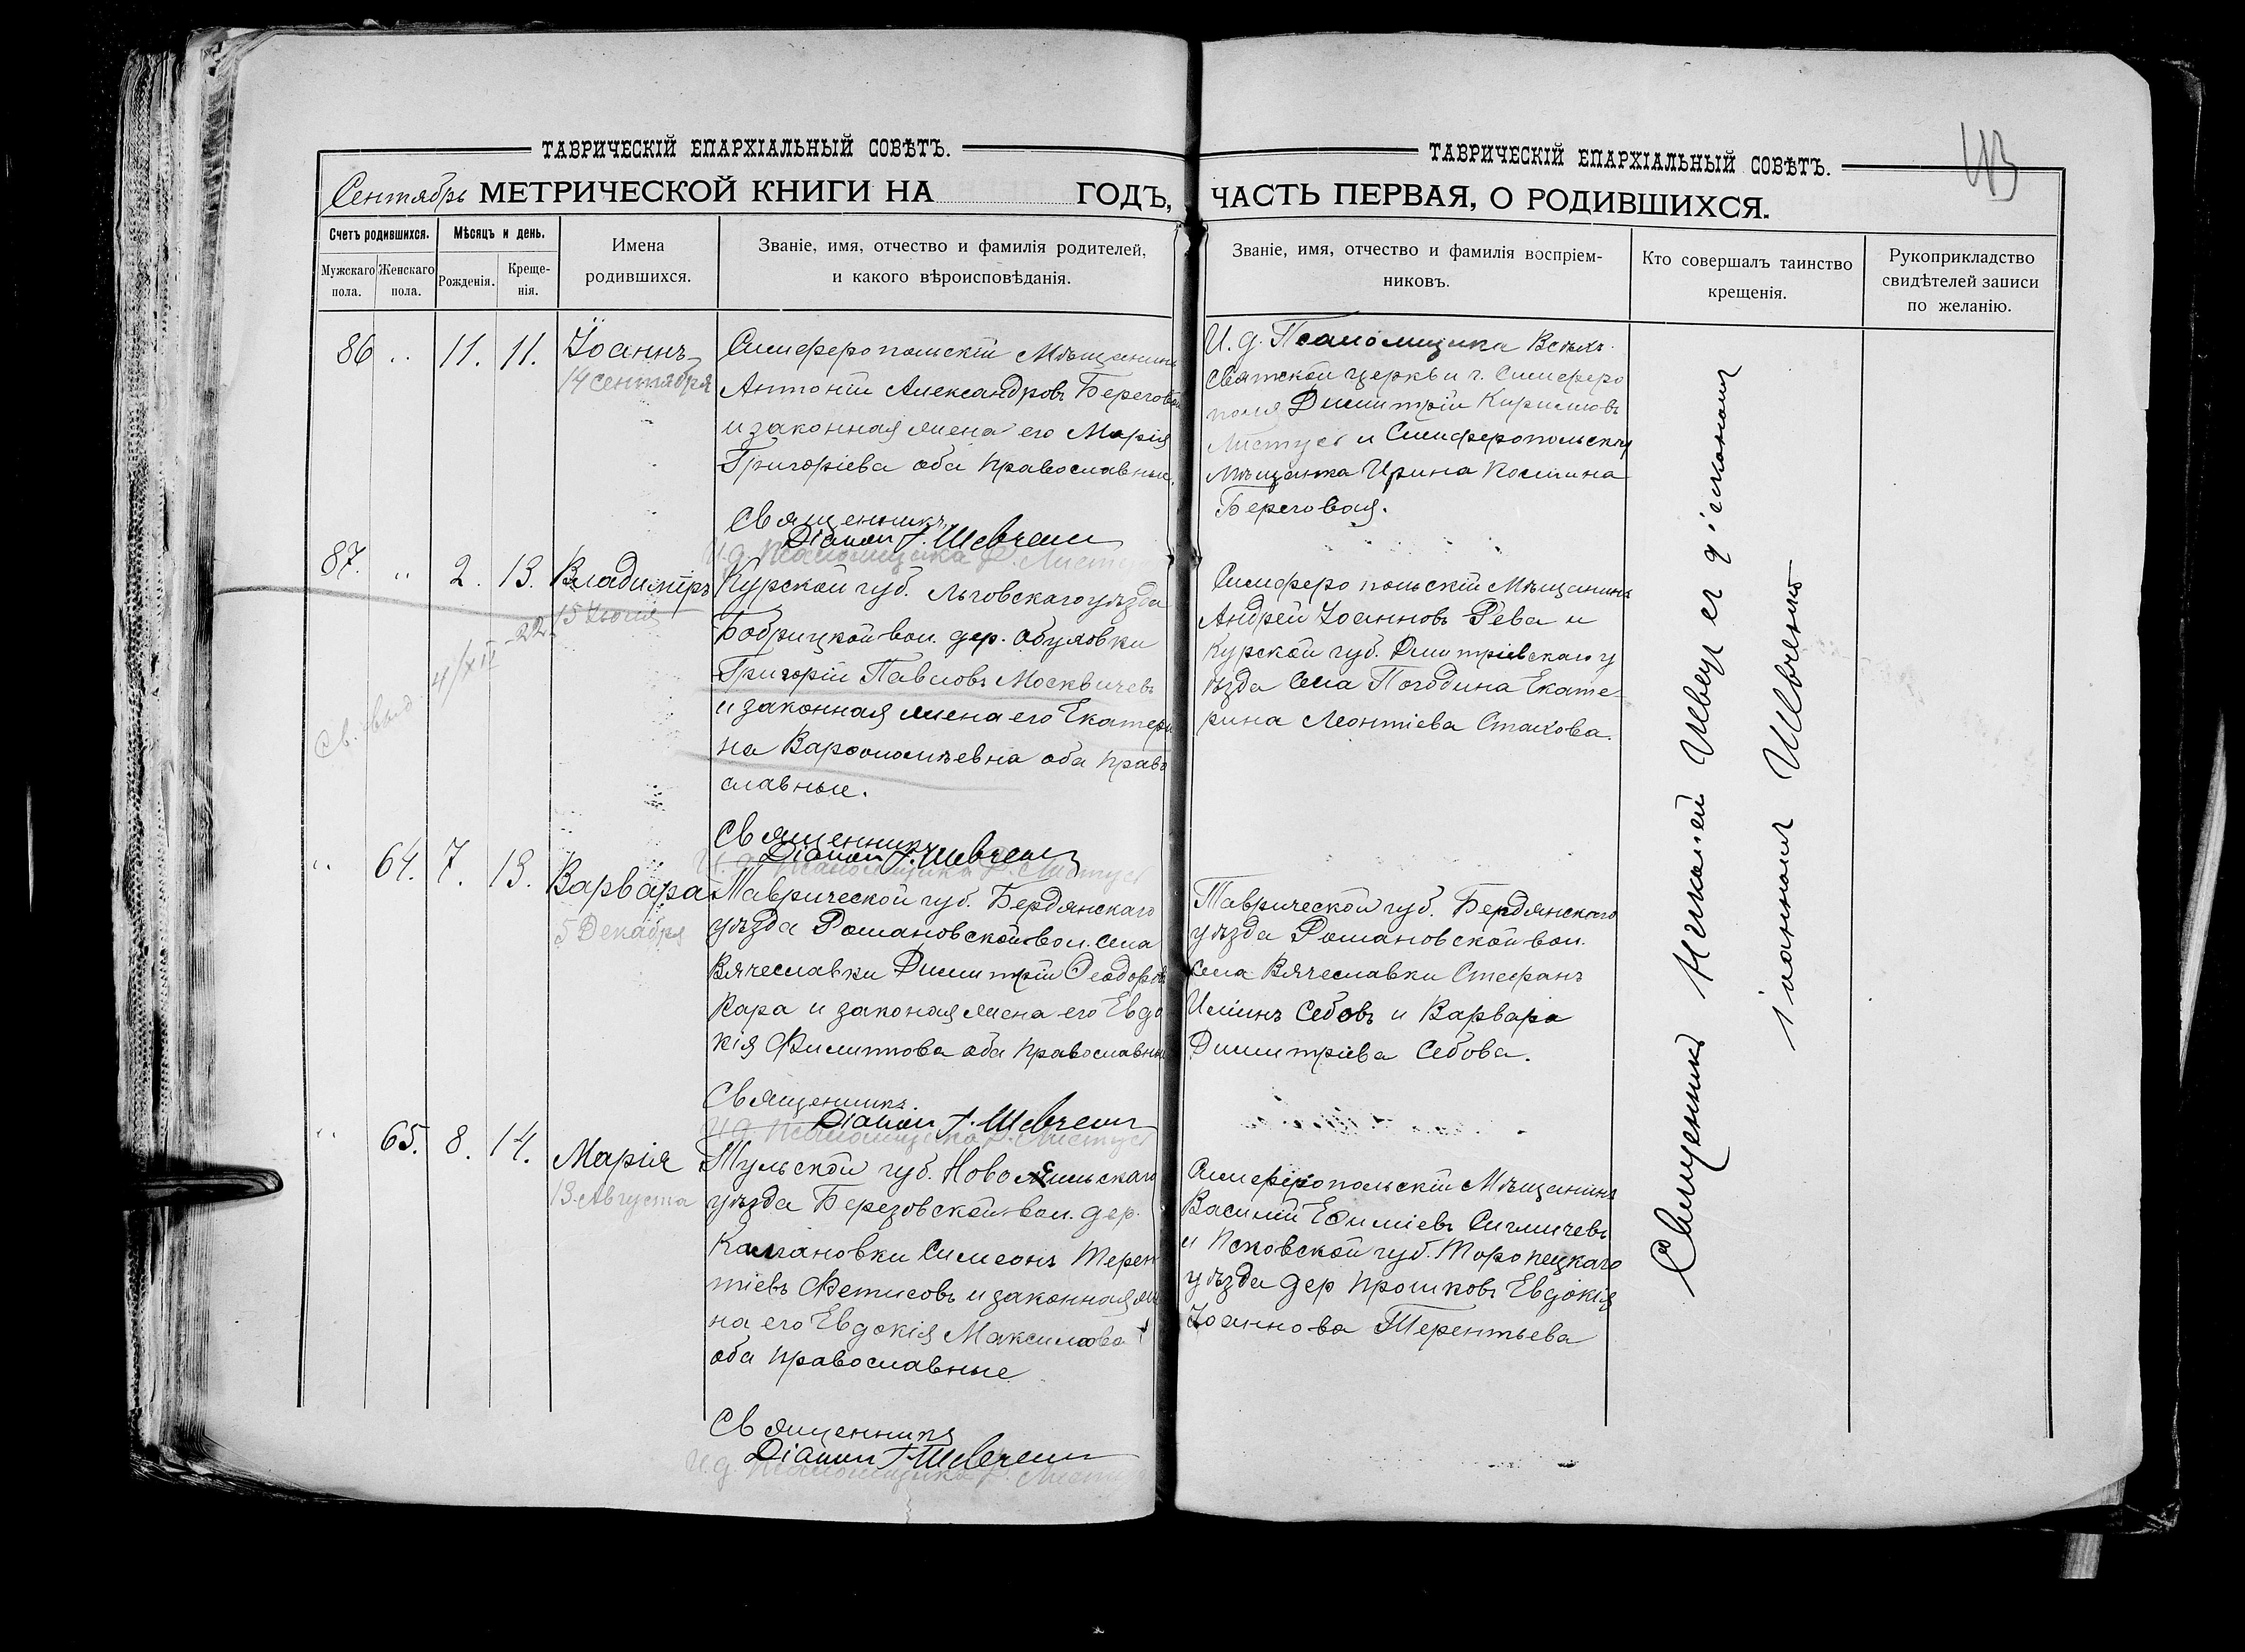 ТАВРИЧЕСКІЙ ЕПАРХІАЛЬНЫЙ СОВѢТЪ.
Сентябрь МЕТРИЧЕСКОЙ КНИГИ НА ГОДЪ,
Счетъ родившихся.
Мѣсяцъ и день.
Имена родившихся.
Званіе, имя, отчество и фамилія родителей,
и какого вѣроисповѣданія.
Мужскаго пола.
Женскаго пола.
Рожденія.
Крещенія.
86 " 11. 11. Іоаннъ
14 Сентября
Симферопольскій Мѣщанинъ
Антоній Александровъ Береговой
и законная жена его Марія
Григоріева оба православные.
Священникъ
Діакон І. Шевченко
И. д. Псаломщика Д. Листус
87. " 2. 13. Владиміръ
15 Іюля
Св. выд 4/XII 22
Курской губ. Льговскаго уѣзда
Бобрицкой вол. дер.
Григорій Павловъ Москвичевъ
и законная жена его Екатери
на Варѳоломѣевна оба право
славные.
Священникъ
Діакон І. Шевченко
И. д. Псаломщика Д. Листус
" 64. 7. 13. Варвара
5 Декабря
Таврической губ. Бердянскаго
уѣзда Романовской вол. села
Вячеславки Димитрій Ѳеодоровъ
Кара и законая жена его Евдо
кія Филиппова оба православные
Священникъ
Діакон І. Шевченко
И. д. Псаломщика Д. Листус
" 65. 8. 14. Марія
13 Августа
Тульской губ. Новосильскаго
уѣзда Березовской вол. дер.
Симеонъ Терен
тіевъ Фетисовъ и законная же
на его Евдокія Максимова
оба православные
Священникъ
Діакон І. Шевченко
И. д. Псаломщика Д. Листус
ТАВРИЧЕСКІЙ ЕПАРХІАЛЬНЫЙ СОВѢТЪ.
ЧАСТЬ ПЕРВАЯ, О РОДИВШИХСЯ.
Званіе, имя, отчество и фамилія воспріем-
никовъ.
Кто совершалъ таинство
крещенія.
Рукоприкладство
свидѣтелей записи
по желанію.
И. д. Псаломщика Всѣхъ
Святской церкви г. Симферо
поля Димитрій Кирилловъ
Листус и Симферопольская
Мѣщанка Ирина Космина
Береговая.
Симферопольскій Мѣщанинъ
Андрей Іоанновъ Рева и
Курской губ. Дмитріевскаго у
ѣзда Села Погодина Екате-
рина Леонтіева Стахова.
Таврической губ. Бердянскаго
уѣзда Романовской вол.
Села Вячеславки Стефанъ
Ильинъ Себовъ и Варвара
Димитріева Себова.
Симферопольскій Мѣщанинъ
Василій
и Псковской губ. Торопецкаго
уѣзда дер Прошковъ Евдокія
Іоаннова Терентьева
Священникъ Николай Швец съ діакономъ
Іоанномъ Шевченко